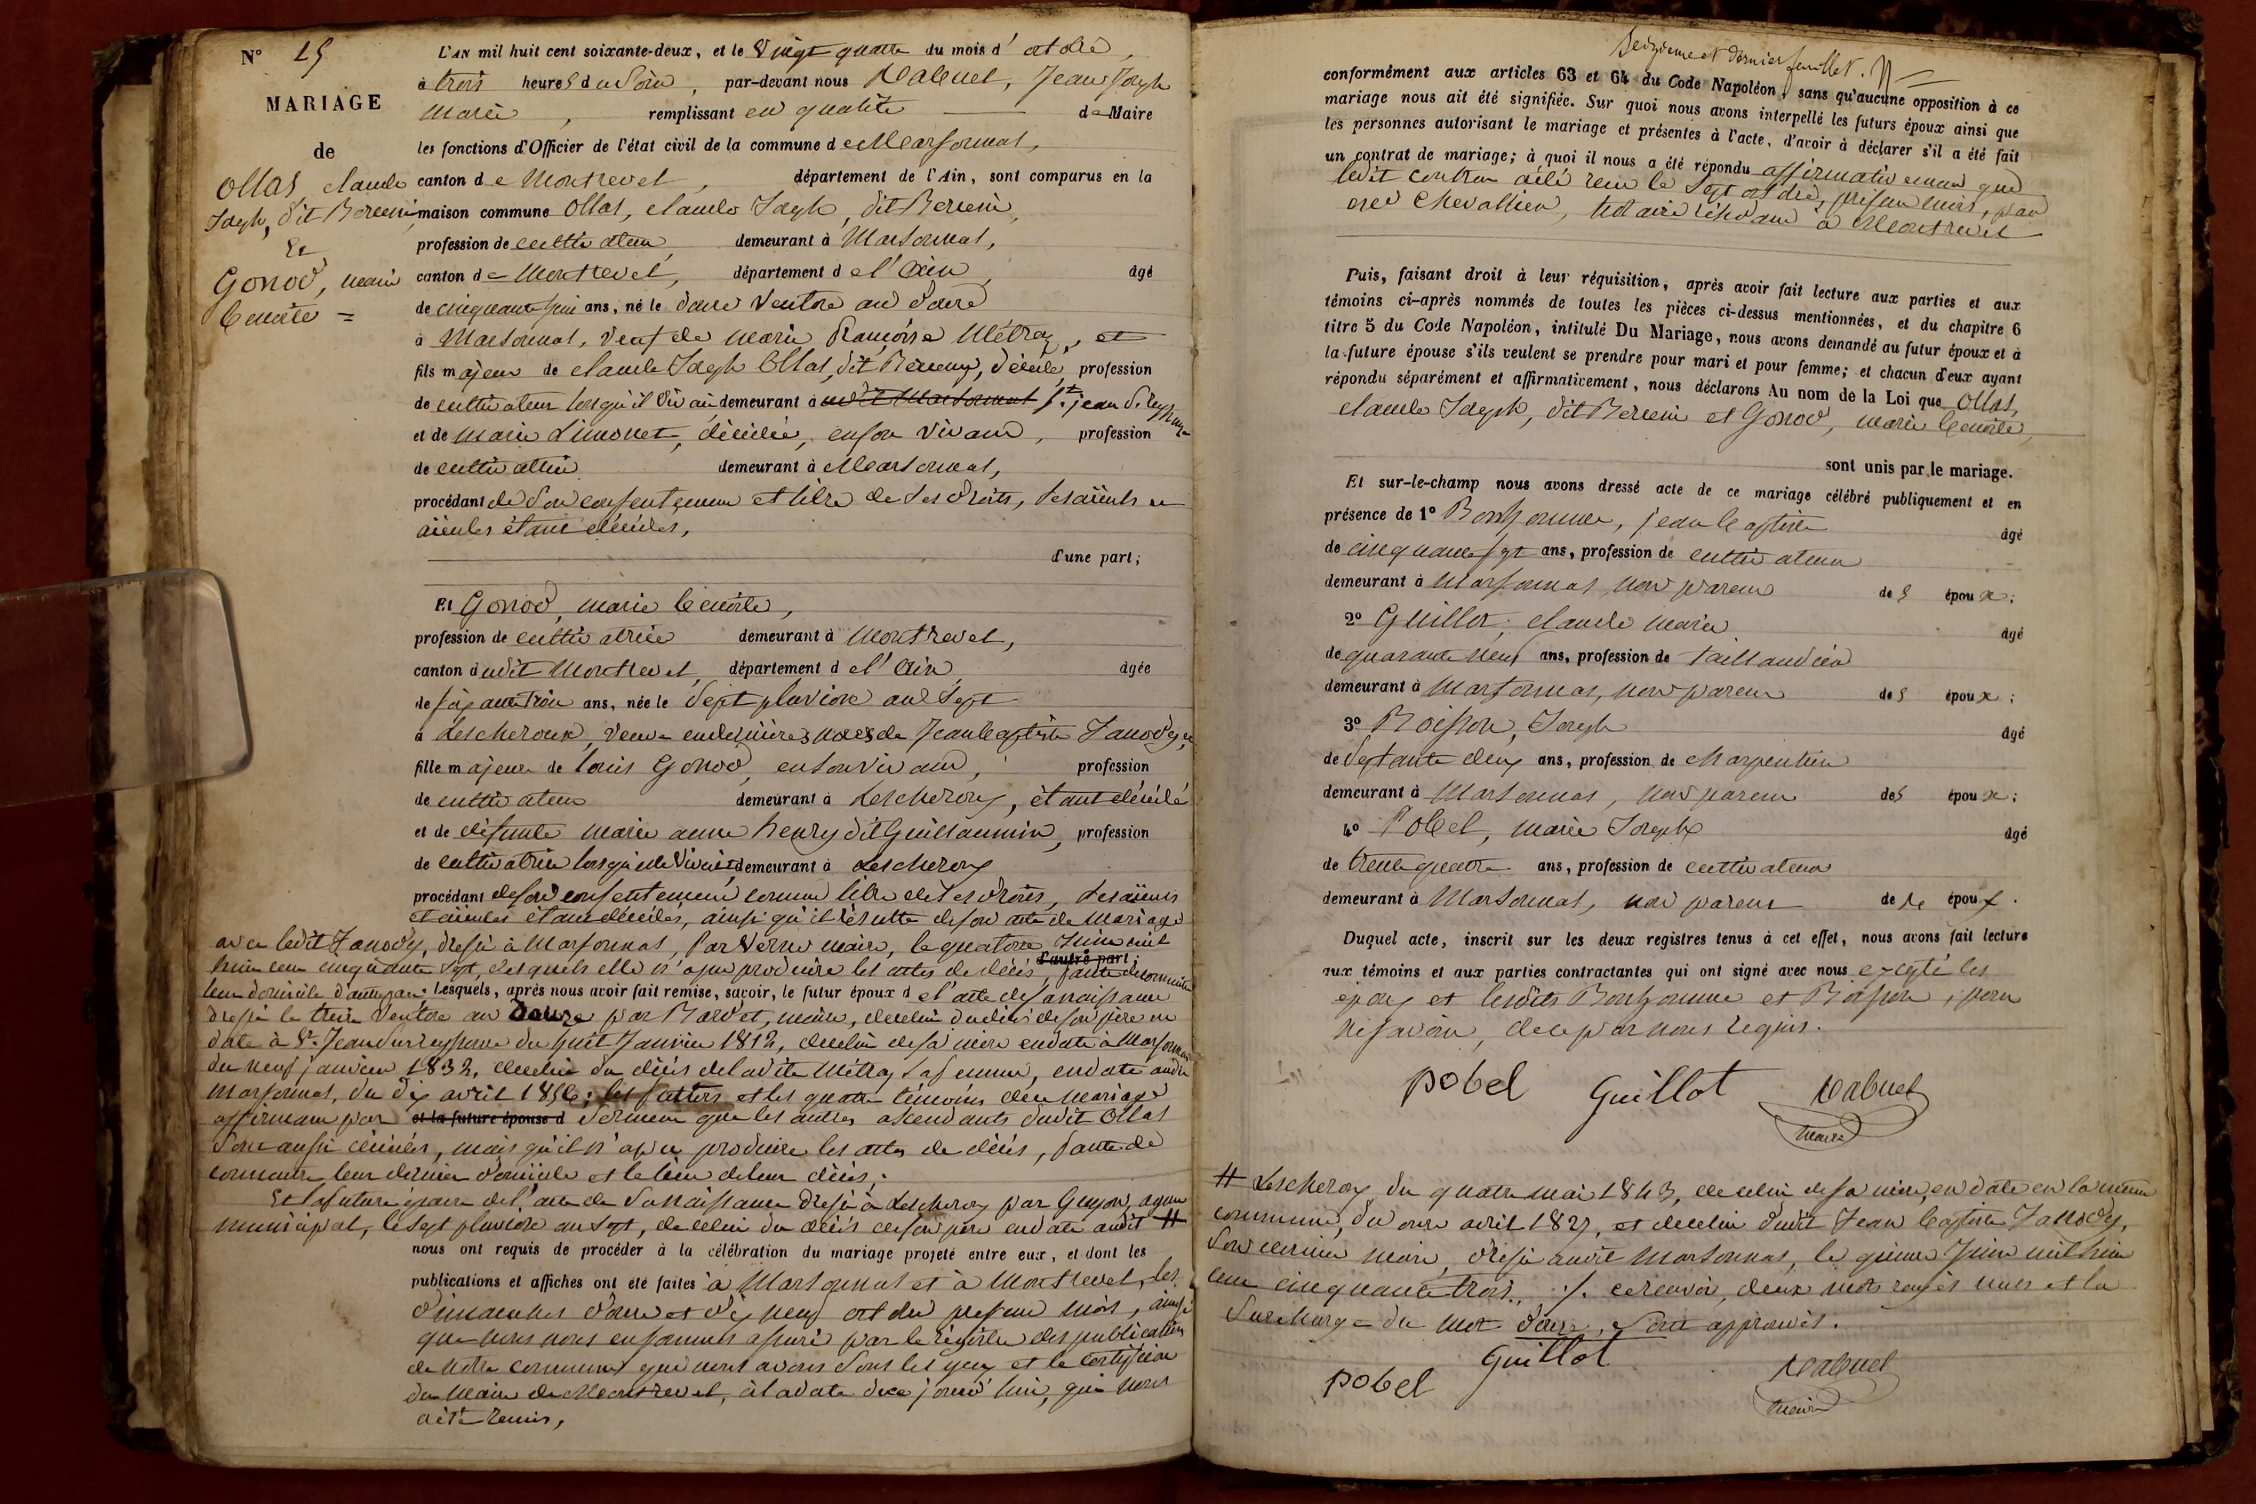 N° 15
MARIAGE
de
Ollas, claude
Joseph, dit Berceni
Et
Gonod, marie
benoite =
L'AN mil huit cent soixante-deux, et le vingt quatre du mois d'octobre,
à trois heures du Soir, par-devant nous Dabuet, Jean Joseph
Marie, remplissant en qualité de Maire
les fonctions d'Officier de l'état civil de la commune de Marsonnas,
canton de Montrevel, département de l'Ain, sont comparus en la
maison commune Ollas, claude Joseph, dit Berceni,
profession de cultivateur demeurant à Marsonnas,
canton de Montrevel, département de l'Ain, âgé
de cinquante huit ans, né le douze Ventose an douze
à Marsonnas, veuf de marie Françoise Métray, et
fils majeur de claude Joseph Ollas, dit Berceny, décédé, profession
de cultivateur lorsqu'il vivait demeurant à audit Marsonnas St. jean S. reyssouze
et de Marie Limonet, décédée, en son vivant, profession
de cultivatrice demeurant à Marsonnas,
procédant de Son consentement et libre de Ses droits, Ses aïeuls et
aïeules étant décédés,
d'une part;
Et Gonod, marie benoite,
profession de cultivatrice demeurant à Montrevel,
canton dudit Montrevel, département de l'Ain, âgée
de soixante trois ans, née le Sept pluviose an Sept
à Lescheroux, veuve en dernières noces de Jean baptiste Janody, et
fille majeure de louis Gonod, en son vivant, profession
de cultivateur demeurant à Lescheroux, étant décédé
et de défunte marie anne henry dit Guillaumin, profession
de cultivatrice lorsqu'elle vivait demeurant à Lescheroux
procédant de son consentement comme libre de Ses droits, Ses aïeuls
et aïeules étant décédés, ainsi qu'il résulte de son acte de mariage
avec ledit Janody, dressé à Marsonnas, par Verne maire, le quatorze Juin mil
huit cent cinquante Sept, desquels elle n'a pu produire les actes de décès, faute de connaitre
d'autre part;
leur domicile d'autre part. Lesquels, après nous avoir fait remise, savoir, le futur époux de l'acte de sa naissance
dressé le treize Ventose an douze par Bardet, maire, de celui du décès de son père en
date à St. Jean Sur reyssouze du huit Janvier 1812, de celui de sa mère en date à Marsonnas
du neuf janvier 1832, de celui du décès de ladite Métray Sa femme, en date audit
Marsonnas, du dix avril 1856; les futurs et les quatre témoins du mariage
affirmant par et la future épouse d Serment que les autres ascendants dudit Ollas
Sont aussi décédés, mais qu'il n'a pu produire les actes de décès, faute de
connaitre leur dernier domicile et le lieu de leur décès;
Et la future épouse de l'acte de Sa naissance dressé à Lescheroux par Guyon, agent
municipal, le Sept pluviose an Sept, de celui du décès de son père en date audit #
nous ont requis de procéder à la célébration du mariage projeté entre eux, et dont les
publications et affiches ont été faites à Marsonnas et à Montrevel, les
dimanches douze et dix neuf octobre présent mois, ainsi
que nous nous en sommes assuré par le registre des publications
de notre commune que nous avons Sous les yeux et le certificat
du maire de Montrevel, à la date de ce jourd'hui, qui nous
a été remis,
Seizieme et dernier feuillet.
conformément aux articles 63 et 64 du Code Napoléon, sans qu'aucune opposition à ce
mariage nous ait été signifiée. Sur quoi nous avons interpellé les futurs époux ainsi que
les personnes autorisant le mariage et présentes à l'acte, d'avoir à déclarer s'il a été fait
un contrat de mariage; à quoi il nous a été répondu affirmativement que
ledit contrat a été reçu le Sept octobre, présent mois, par
me Chevallier, Notaire résidant à Montrevel
Puis, faisant droit à leur réquisition, après avoir fait lecture aux parties et aux
témoins ci-après nommés de toutes les pièces ci-dessus mentionnées, et du chapitre 6
titre 5 du Code Napoléon, intitulé Du Mariage, nous avons demandé au futur époux et à
la future épouse s'ils veulent se prendre pour mari et pour femme; et chacun d'eux ayant
répondu séparément et affirmativement, nous déclarons Au nom de la Loi que Ollas,
claude Joseph, dit Berceni et Gonod, marie benoite,
sont unis par le mariage.
Et sur-le-champ nous avons dressé acte de ce mariage célébré publiquement et en
présence de 1° Bonhomme, jean baptiste âgé
de cinquante sept ans, profession de cultivateur
demeurant à Marsonnas, non parent des époux;
2° Guillot, claude marie âgé
de quarante neuf ans, profession de taillandier
demeurant à Marsonnas, non parent des époux;
3° Boisson, Joseph âgé
de Septante deux ans, profession de charpentier
demeurant à Marsonnas, non parent des époux;
4° Pobel, marie Joseph âgé
de trente quatre ans, profession de cultivateur
demeurant à Marsonnas, non parent des époux.
Duquel acte, inscrit sur les deux registres tenus à cet effet, nous avons fait lecture
aux témoins et aux parties contractantes qui ont signé avec nous excepté les
époux et lesdits Bonhomme et Boisson, pour
ne savoir, de ce par nous requis.
pobel Guillot Dabuet
maire
# Lescheroux du quatre mai 1843, de celui de sa mère, en date en la même
commune, du onze avril 1827, et de celui dudit Jean baptiste Janody,
Son dernier mari, dressé audit Marsonnas, le quinze Juin mil huit
cent cinquante trois. ./. ce renvoi, deux mots rayés nuls et la
Surcharge du mot douze, Sont approuvés.
pobel Guillot Dabuet
maire